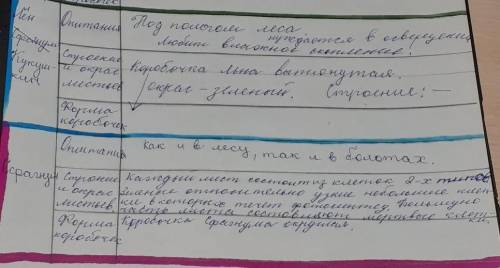 Лён
Сфагнум
Кукуш-
кин
Опитания
Под пологом леса.
нуждается в освередении
любит влажное скопление.
Строение
и окрас
листьев
Коробочка льна вытянутая.
окрас - зеленый. Строение: -
Форма
коробочек
Спитания
как и в лесу, так и в болотах.
Строение
и окрас
листьев
Каждый лист состоит из клеток 2-х типов
зеленые относительно узкие небольшие клет-
ки в которых течет фотосинтез. Большую
часть листа составляют мертвые клетки.
Форма
коробочек
Коробочка Сфагнума округлая.